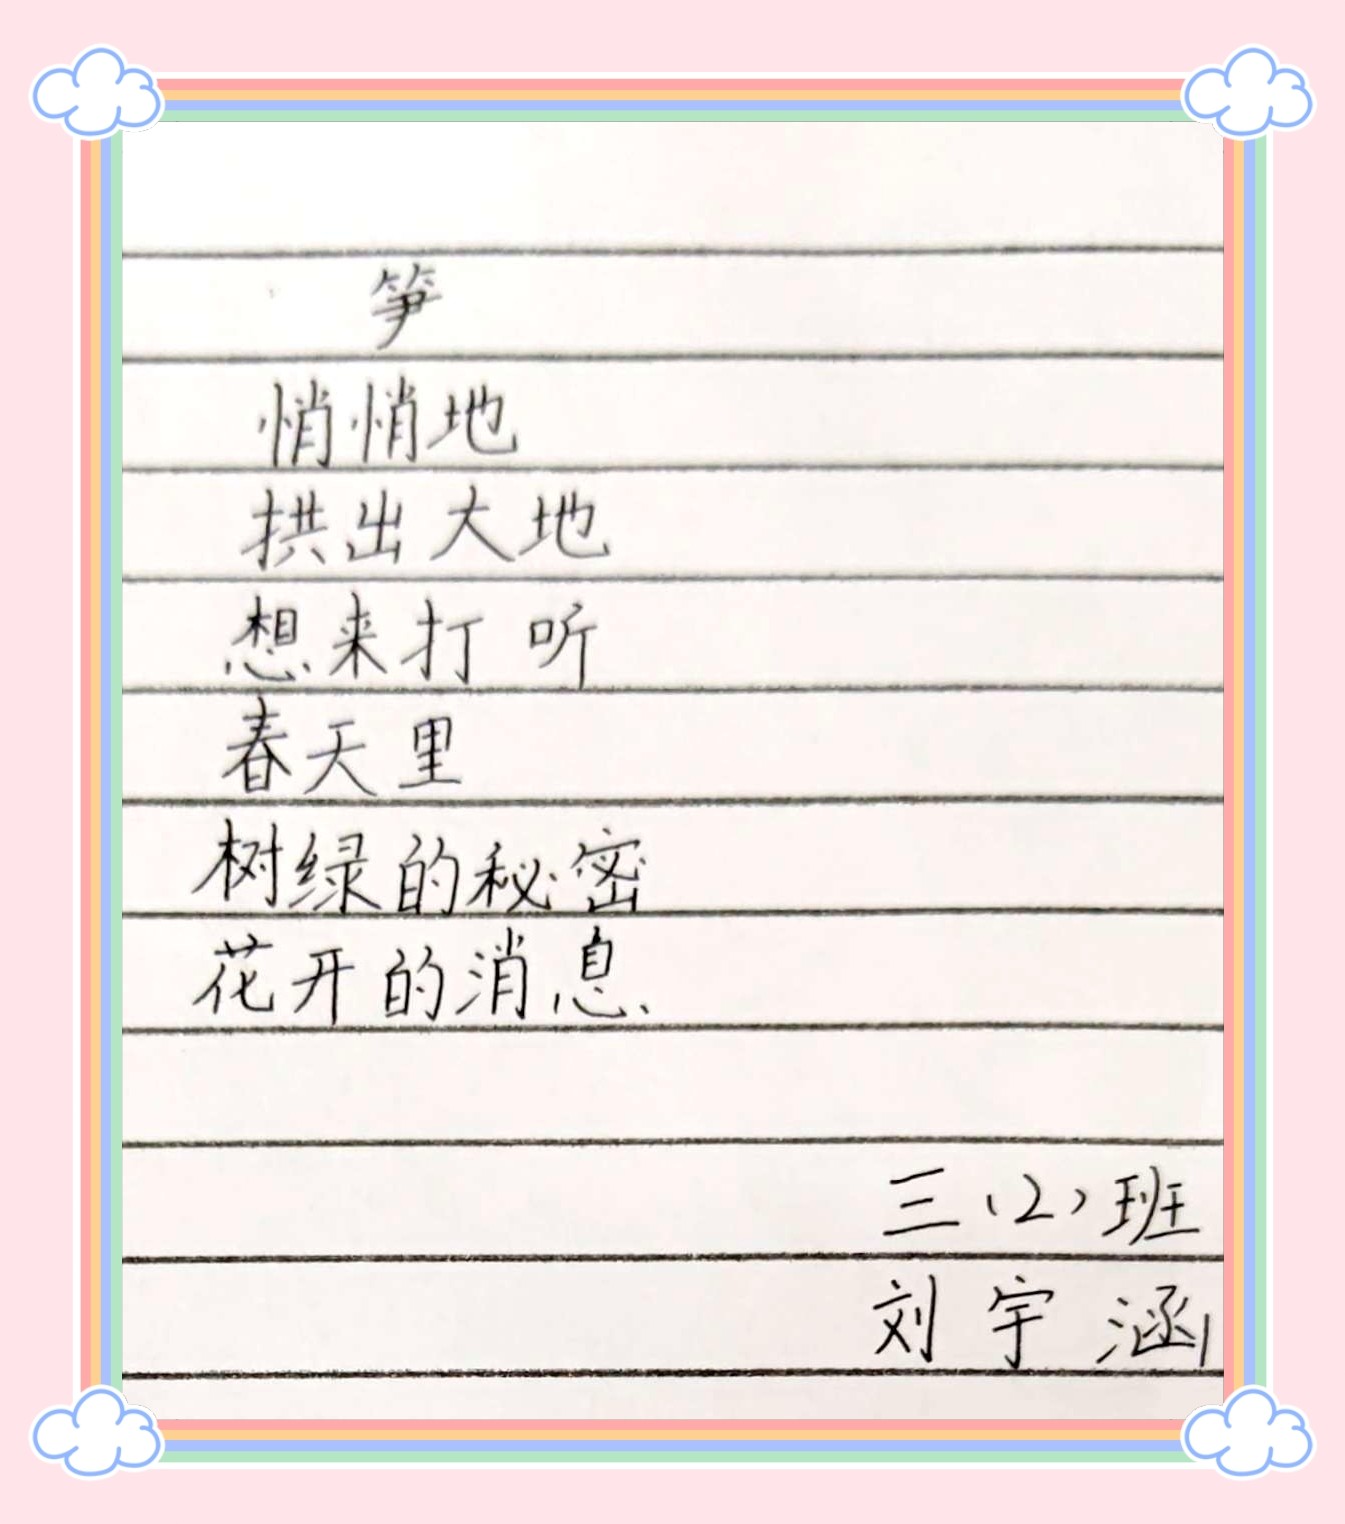 笋
悄悄地
拱出大地
想来打听
春天里
树绿的秘密
花开的消息
三(2)班
刘宇涵